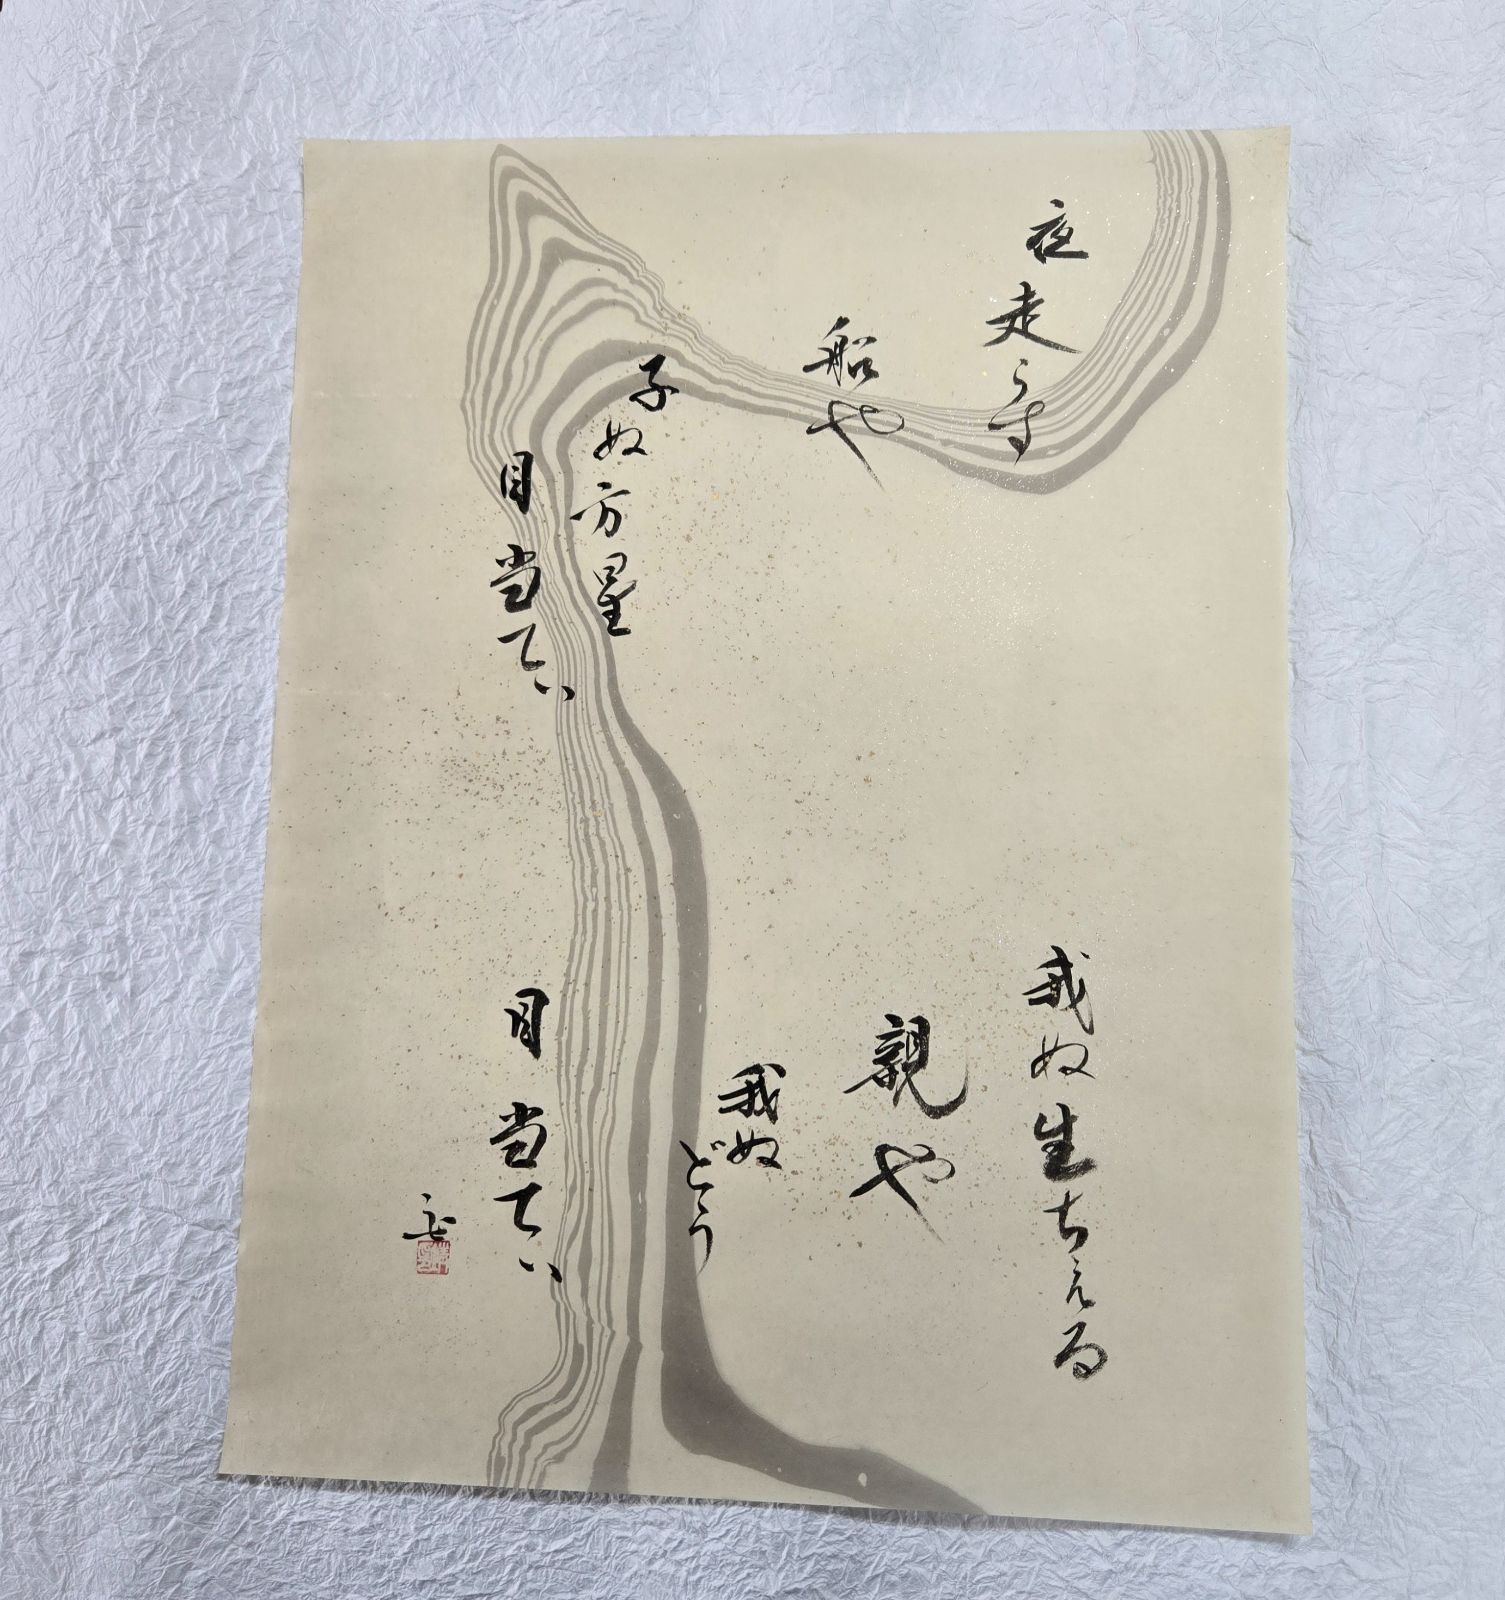 夜走らす
船や
子ぬ方星
目当てぃ
我ぬ生ちぇる
親や
我ぬ
どぅ
目当てぃ